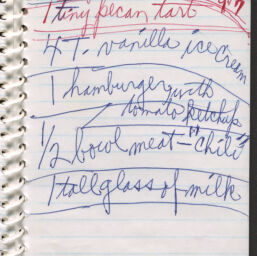 1 tiny pecan tart
4 T. vanilla ice cream
1 hamburger with
tomato ketchup
1/2 bowl meat - "chili"
1 tall glass of milk